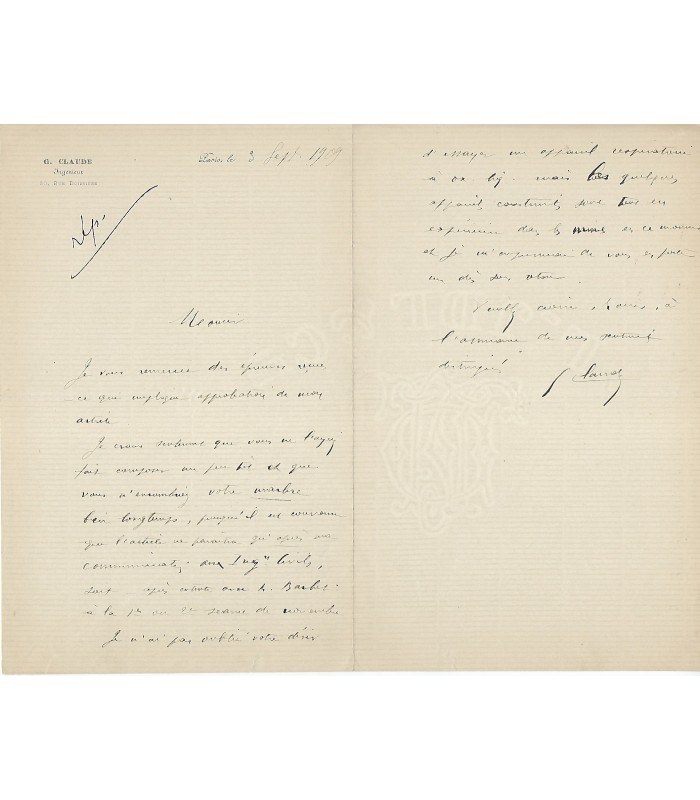 G. CLAUDE
Ingénieur
Rue
Paris, le 3 Sept 1909
rép.
Monsieur
Je vous remercie des épreuves reçues
ce que implique approbation de mon
article
Je crains seulement que vous ne l'ayez
fait composer un peu tôt et que
vous n'encombriez votre marbre
bien longtemps, puisqu'il est convenu
que l'article ne paraîtra qu'après ma
communication aux Ingrs Civils,
soit après entente avec M. Barbet
à la 1re ou 2e séance de novembre
Je n'ai pas oublié votre désir
d'essayer un appareil respiratoire
à ox liq. mais les quelques
appareils construits sont tous en
expérience dans les mines en ce moment
et je m'empresserai de vous en
un dès son retour
Veuillez croire, Monsieur, à
l'assurance de mes sentiments
distingués
Claude